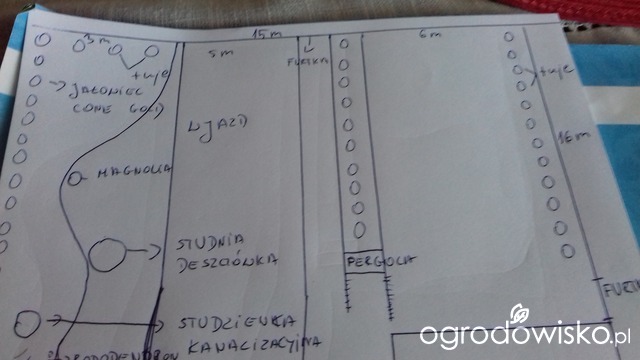 15 m
3 m
5 m
6 m
FURTKA
tuje
tuje
JAŁOWIEC
GOLD
WJAZD
16 m
MAGNOLIA
STUDNIA
DESZCZÓWKA
PERGOLA
FURTKA
STUDZIENKA
KANALIZACYJNA
ogrodowisko.pl